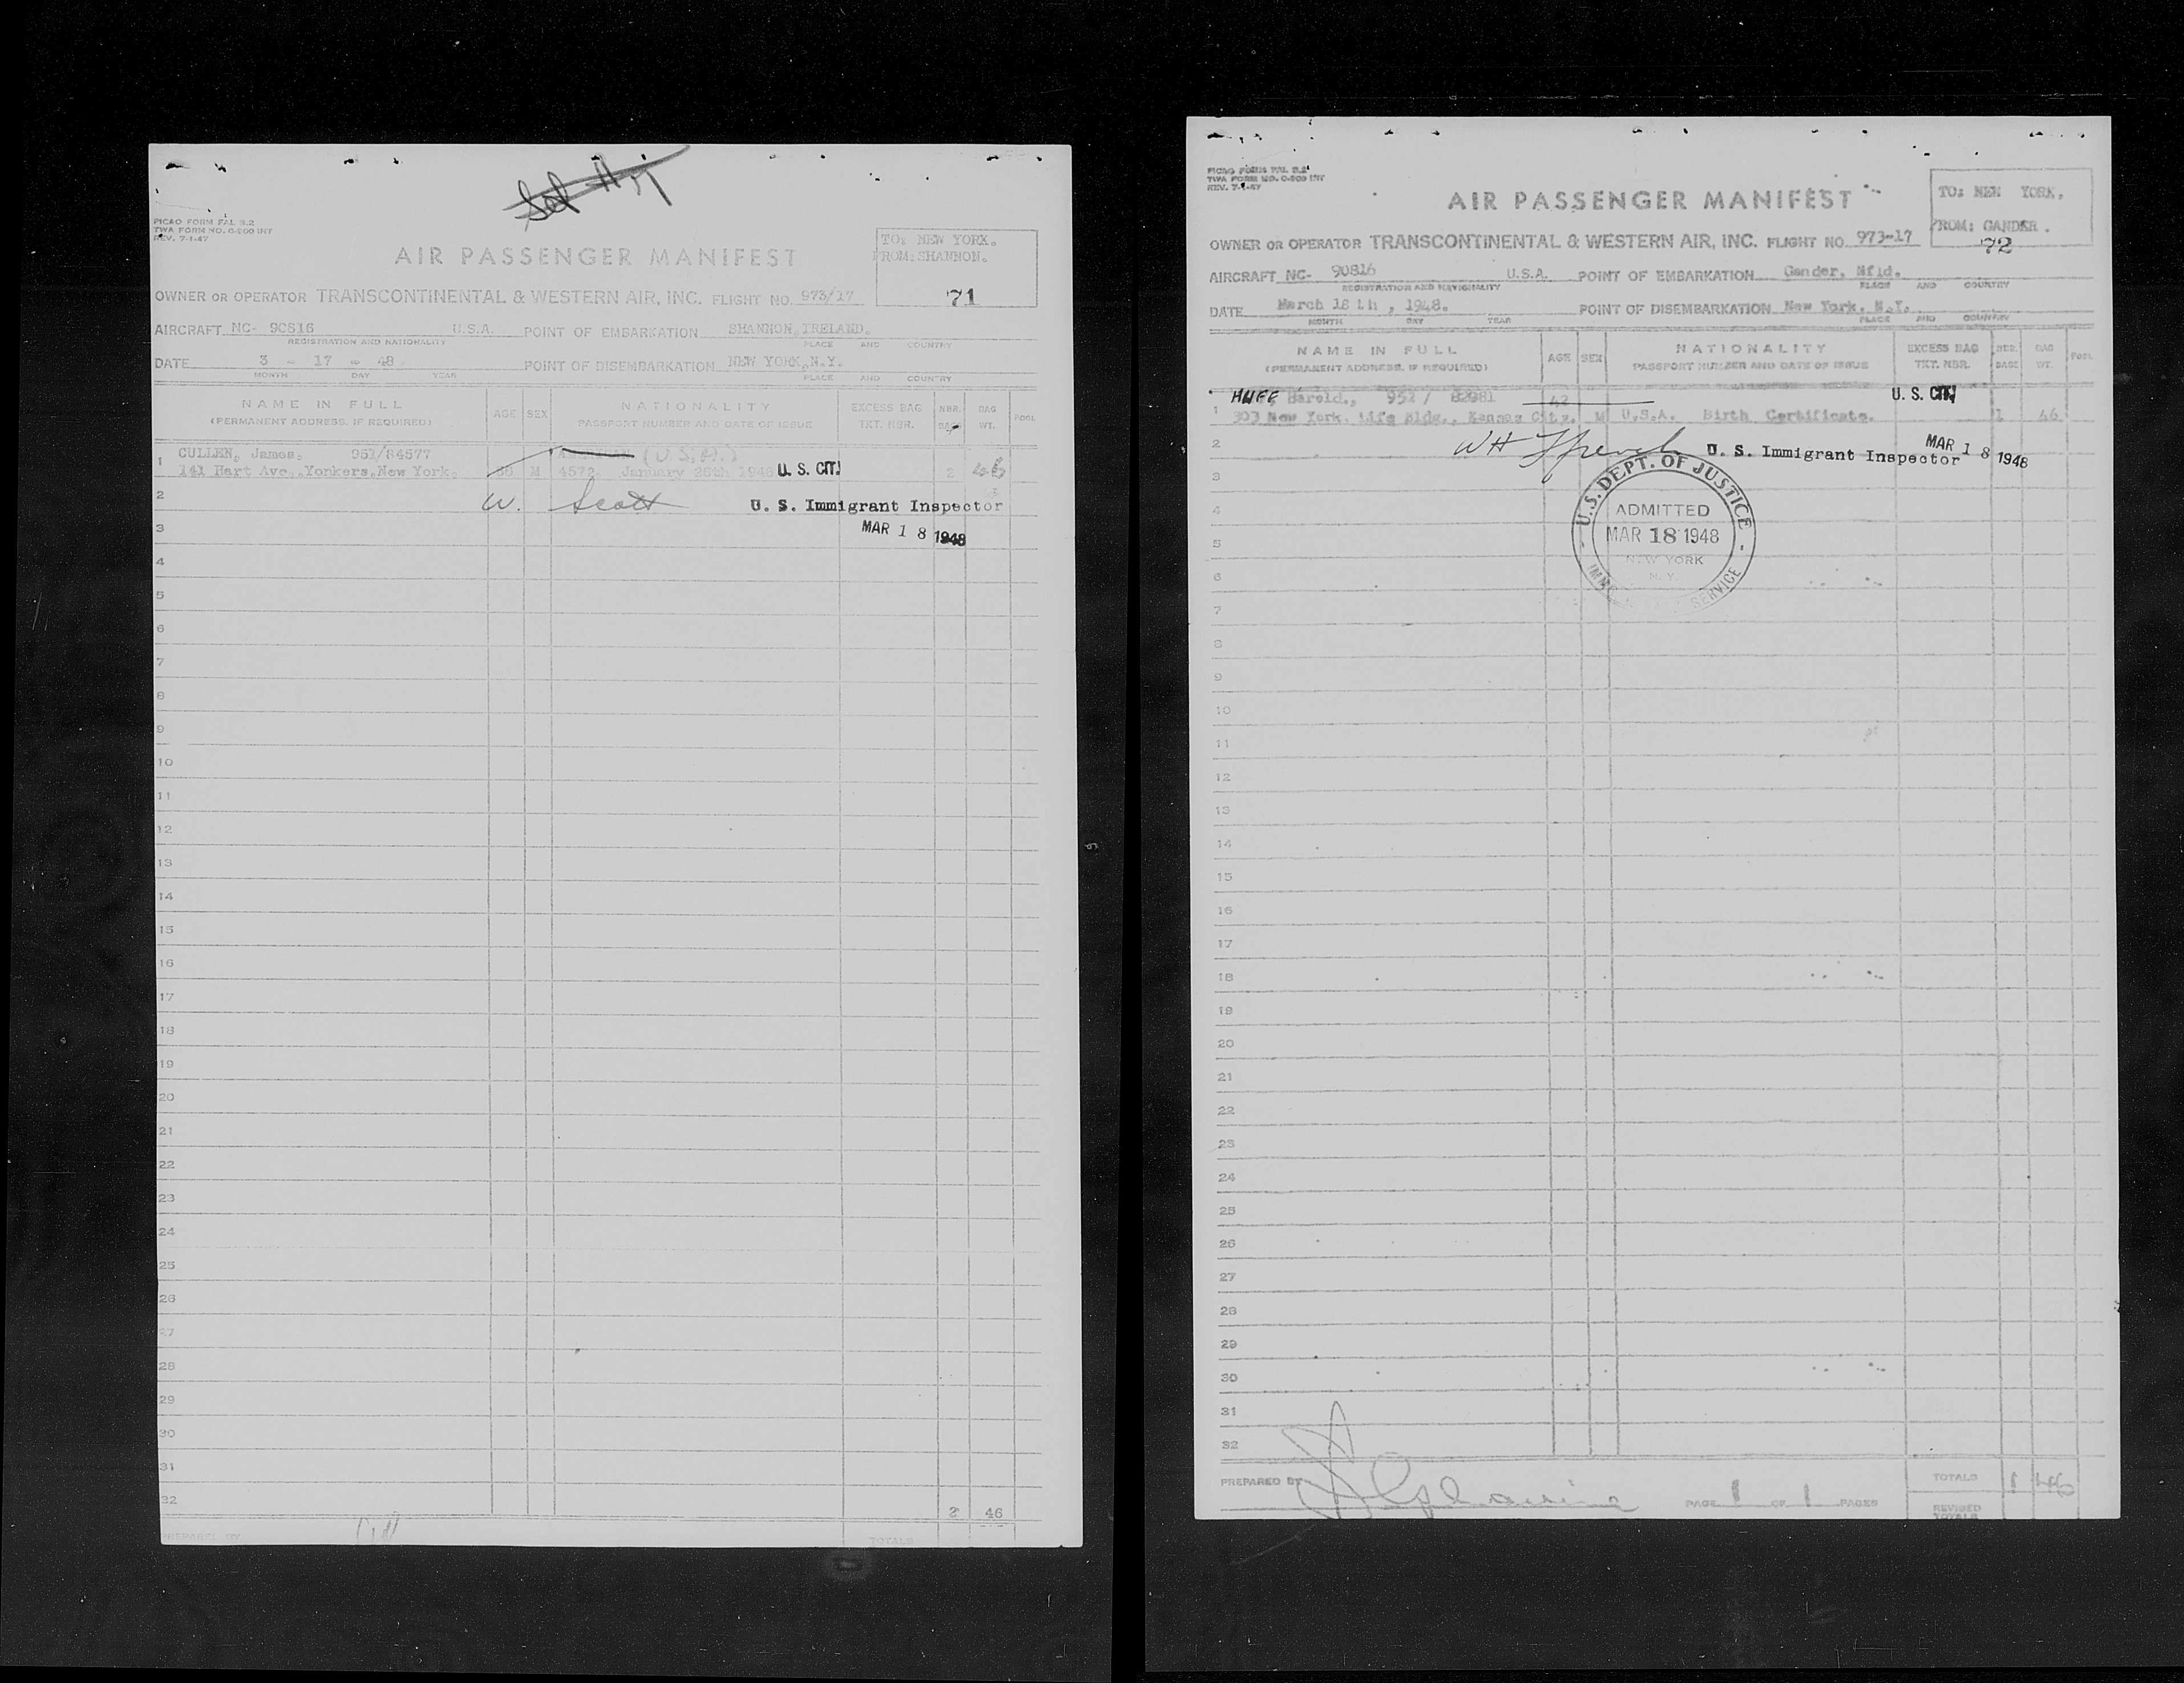 PICAO FORM FAL 3.2
TWA FORM NO. O-200 INT
REV. 7-1-47
AIR PASSENGER MANIFEST
TO: NEW YORK.
FROM: SHANNON.
71
OWNER OR OPERATOR TRANSCONTINENTAL & WESTERN AIR, INC. FLIGHT NO. 973/17
AIRCRAFT NC- 90816 U.S.A. POINT OF EMBARKATION SHANNON, IRELAND.
REGISTRATION AND NATIONALITY PLACE AND COUNTRY
DATE 3 - 17 - 48 POINT OF DISEMBARKATION NEW YORK, N.Y.
MONTH DAY YEAR PLACE AND COUNTRY
NAME IN FULL AGE SEX NATIONALITY EXCESS BAG NBR. BAG POOL
(PERMANENT ADDRESS, IF REQUIRED) PASSPORT NUMBER AND DATE OF ISSUE TKT. NBR. BAGS WT.
CULLEN, James. 951/84577 (U.S.A.)
1 141 Hart Ave., Yonkers, New York. M 4572, January 26th 1948 U. S. CIT. 2
2 W. Scott U. S. Immigrant Inspector
3 MAR 18 1948
4
5
6
7
8
9
10
11
12
13
14
15
16
17
18
19
20
21
22
23
24
25
26
27
28
29
30
31
32 2 46
PREPARED BY TOTALS
PICAO FORM FAL 3.2
TWA FORM NO. O-200 INT
REV. 7-1-47
AIR PASSENGER MANIFEST
TO: NEW YORK,
FROM: GANDER.
72
OWNER OR OPERATOR TRANSCONTINENTAL & WESTERN AIR, INC. FLIGHT NO. 973-17
AIRCRAFT NC- 90816 U.S.A. POINT OF EMBARKATION Gander, Nfld.
REGISTRATION AND NATIONALITY PLACE AND COUNTRY
DATE March 18 th, 1948. POINT OF DISEMBARKATION New York, N.Y.
MONTH DAY YEAR PLACE AND COUNTRY
NAME IN FULL AGE SEX NATIONALITY EXCESS BAG NBR. BAG POOL
(PERMANENT ADDRESS, IF REQUIRED) PASSPORT NUMBER AND DATE OF ISSUE TKT. NBR. BAGS WT.
HUFF, Harold., 951/ 82981 42 U. S. CIT.
1 303 New York. Life Bldg., Kansas City. M U.S.A. Birth Certificate. 1 46
2 U. S. Immigrant Inspector MAR 18 1948
3
U.S. DEPT. OF JUSTICE
4 ADMITTED
5 MAR 18 1948
NEW YORK
6 N.Y.
SERVICE
7
8
9
10
11
12
13
14
15
16
17
18
19
20
21
22
23
24
25
26
27
28
29
30
31
32
PREPARED BY PAGE 1 OF 1 PAGES TOTALS 1 46
REVISED
TOTALS